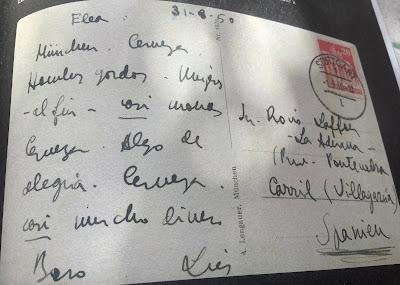 31-8-50
München. Cerveza.
Hombres gordos. Mujeres
- al fin - casi monas
Cerveza. Algo de
alegría. Cerveza.
casi mucho dinero
Beso Luis
A. Lengauer, München
- La Aduana -
(Prov. Pontevedra
Carril (Villagarcía)
Spanien